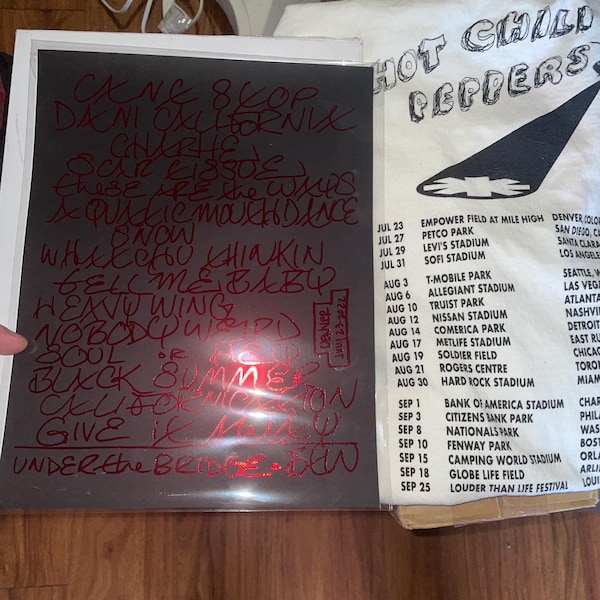 CAN'T STOP
DANI CALIFORNIA
CHARLIE
SCAR TISSUE
these ARE the WAYS
AQUATIC MOUTH DANCE
SNOW
WHATCHU THINKIN
TELL ME BABY
HEAVY WING
NOBODY WEIRD
SOUL or
BLACK SUMMER
CALIFORNICATION
GIVE it AWAY
UNDER the BRIDGE
DENVER
JULY 23-2022
HOT CHILI
PEPPERS
JUL 23 EMPOWER FIELD AT MILE HIGH DENVER, COLO
JUL 27 PETCO PARK SAN DIEGO, CA
JUL 29 LEVI'S STADIUM SANTA CLARA
JUL 31 SOFI STADIUM LOS ANGELE
AUG 3 T-MOBILE PARK SEATTLE, W
AUG 6 ALLEGIANT STADIUM LAS VEG
AUG 10 TRUIST PARK ATLANTA
AUG 12 NISSAN STADIUM NASHVI
AUG 14 COMERICA PARK DETROIT
AUG 17 METLIFE STADIUM EAST RU
AUG 19 SOLDIER FIELD CHICAG
AUG 21 ROGERS CENTRE TORO
AUG 30 HARD ROCK STADIUM MIAM
SEP 1 BANK OF AMERICA STADIUM CHAR
SEP 3 CITIZENS BANK PARK PHILA
SEP 8 NATIONALS PARK WAS
SEP 10 FENWAY PARK BOST
SEP 15 CAMPING WORLD STADIUM ORLA
SEP 18 GLOBE LIFE FIELD ARLI
SEP 25 LOUDER THAN LIFE FESTIVAL LOUI